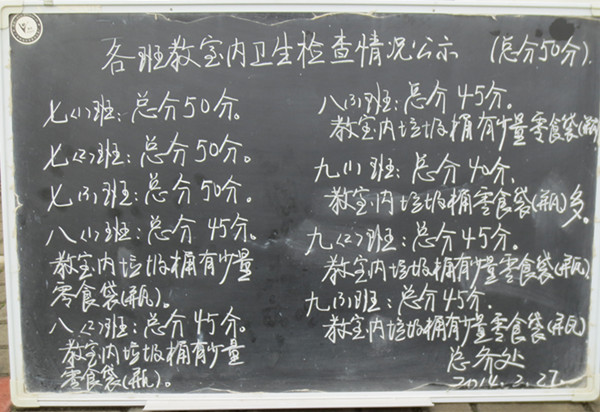 各班教室内卫生检查情况公示 (总分50分).
七(1)班:总分50分。
七(2)班:总分50分。
七(3)班:总分50分。
八(1)班:总分45分。
教室内垃圾桶有少量
零食袋(瓶)。
八(2)班:总分45分。
教室内垃圾桶有少量
零食袋(瓶)。
八(3)班:总分45分.
教室内垃圾桶有少量零食袋(瓶)
九(1)班:总分40分.
教室内垃圾桶零食袋(瓶)多。
九(2)班:总分45分.
教室内垃圾桶有少量零食袋(瓶)
九(3)班:总分45分.
教室内垃圾桶有少量零食袋(瓶)
总务处
2014.2.27.